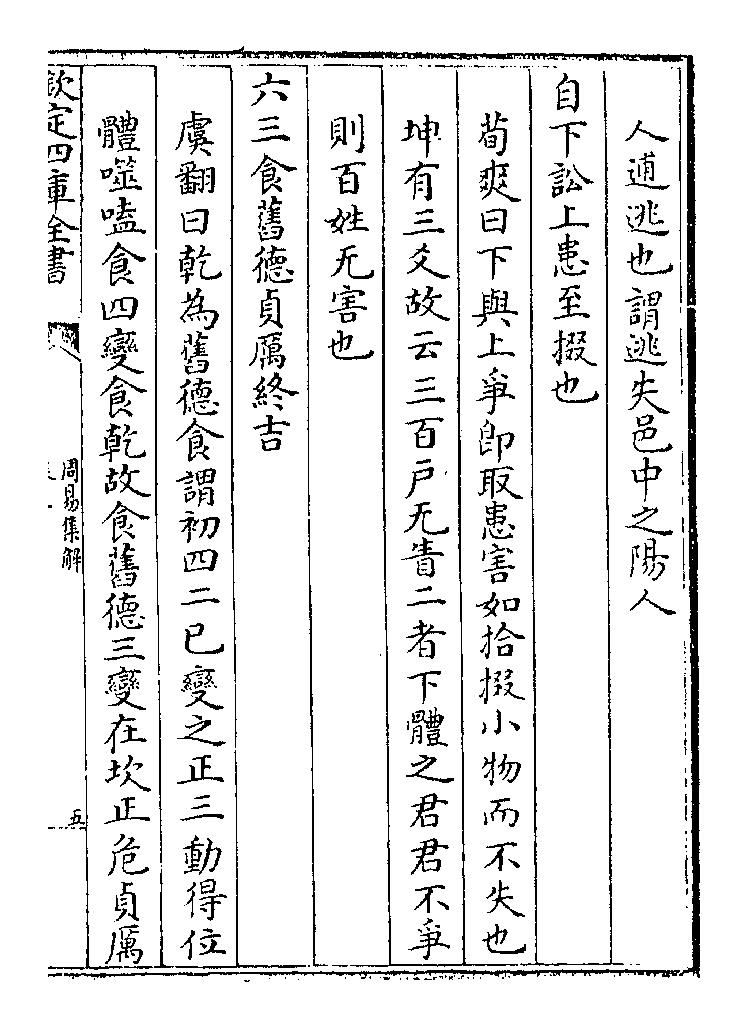 人逋逃也謂逃失邑中之陽人
自下訟上患至掇也
荀爽曰下與上爭即取患害如拾掇小物而不失也
坤有三爻故云三百戶无眚二者下體之君君不爭
則百姓无害也
六三食舊德貞厲終吉
虞翻曰乾為舊德食謂初四二已變之正三動得位
體噬嗑食四變食乾故食舊德三變在坎正危貞厲
欽定四庫全書
周易集解
五